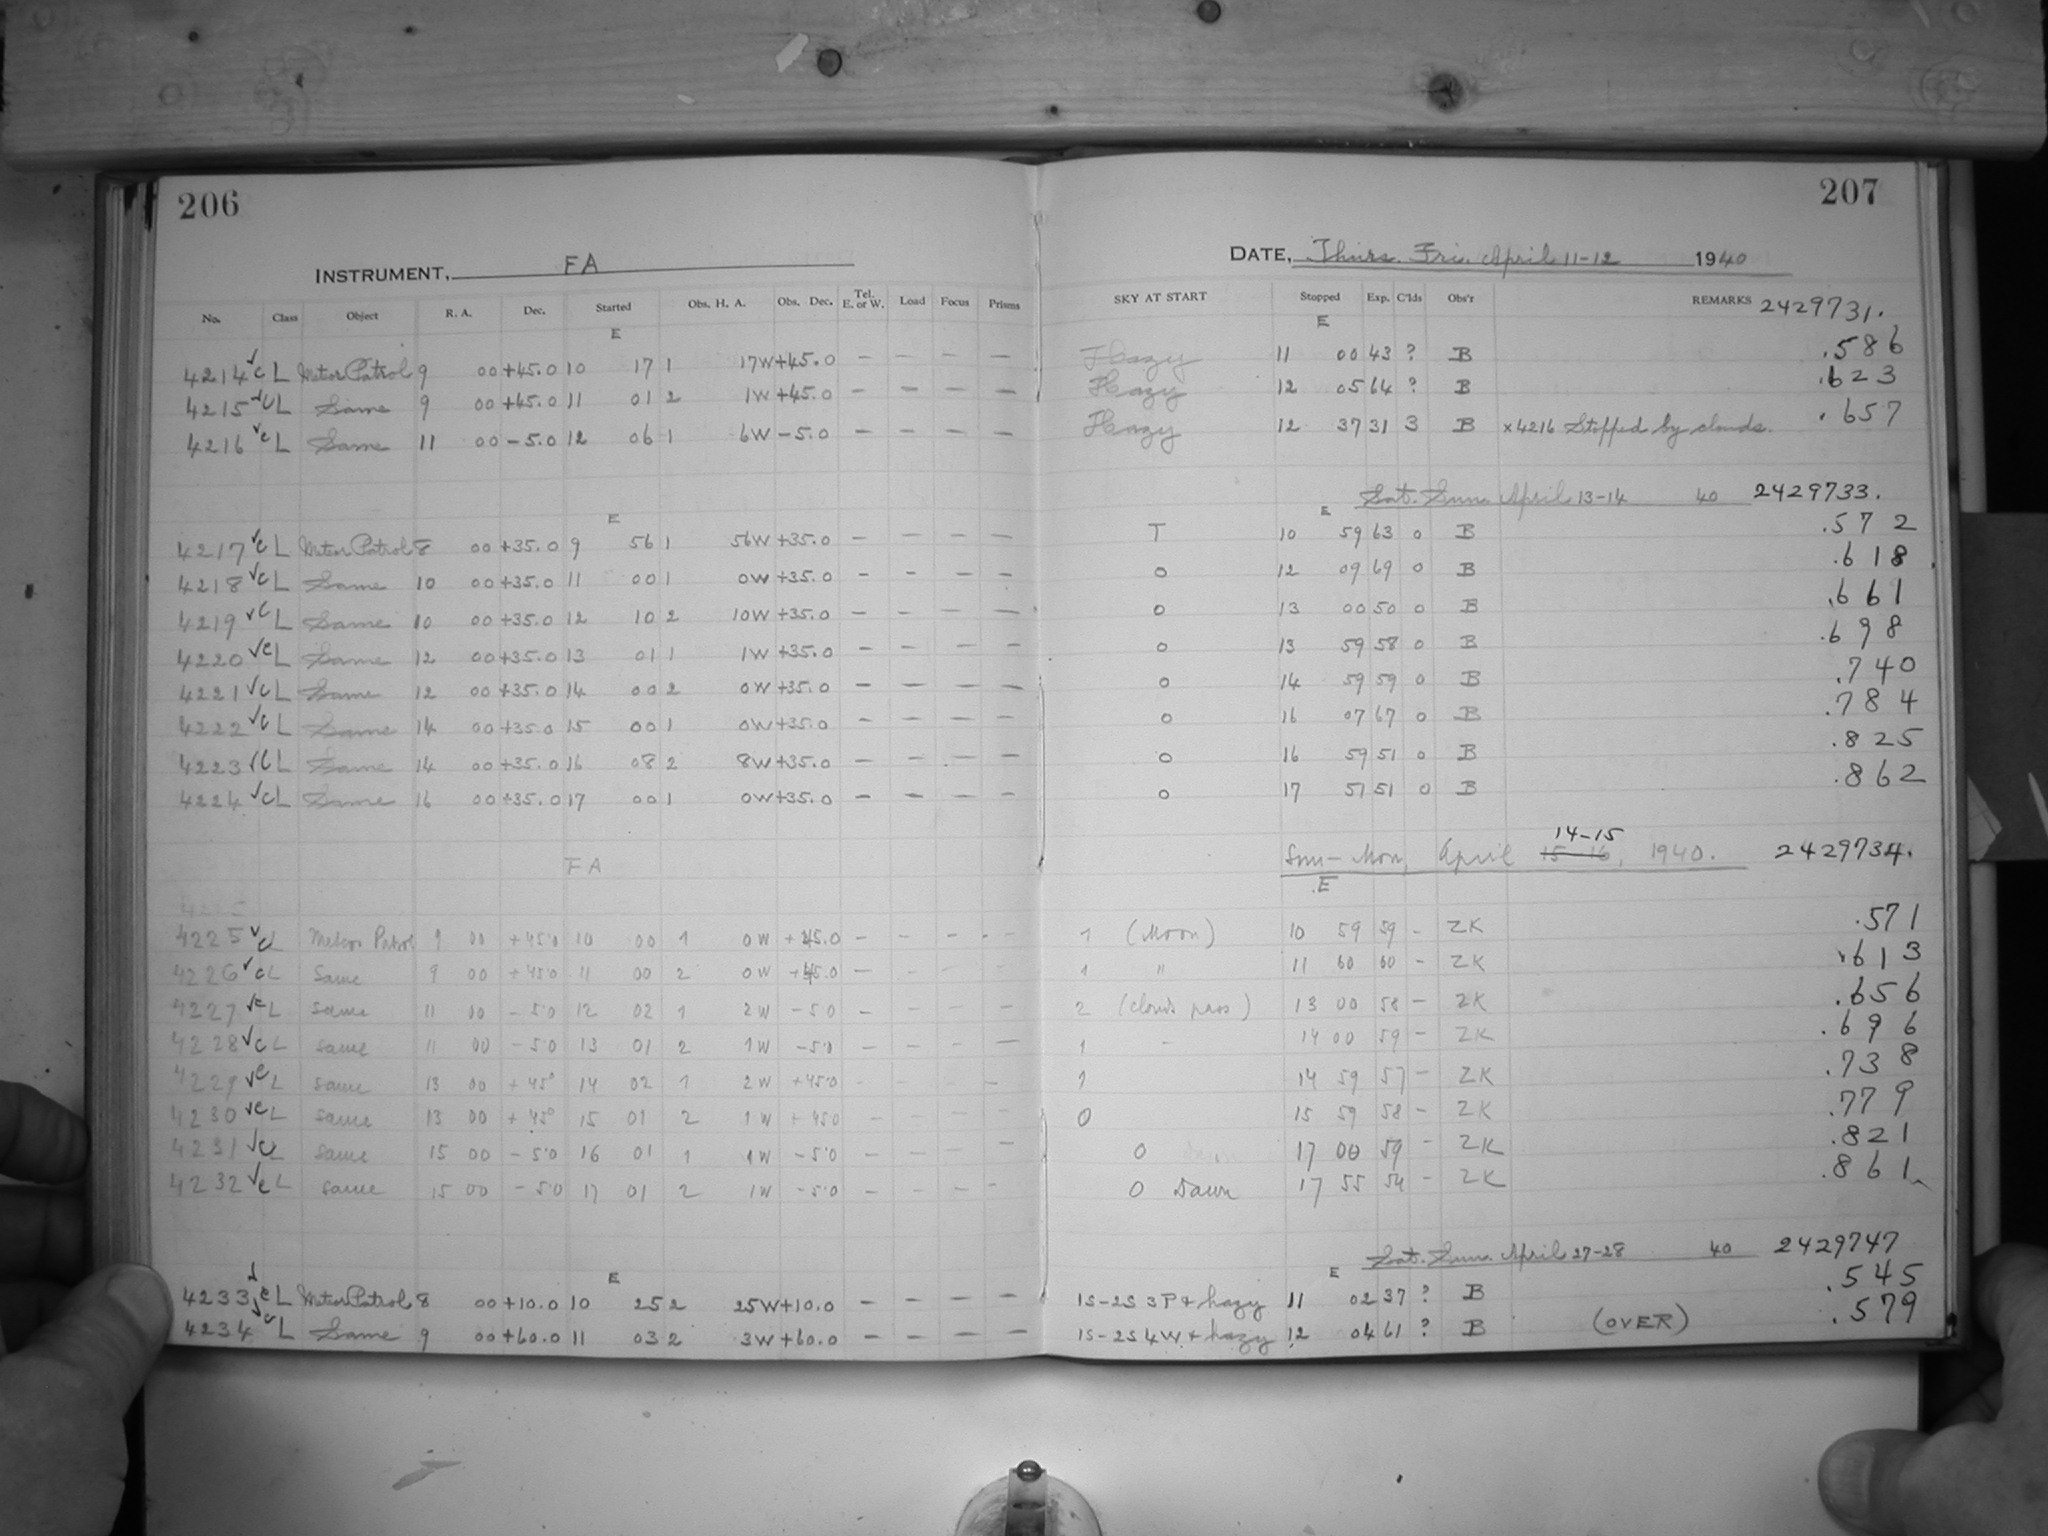 206
207
INSTRUMENT, FA
DATE, Thurs. Fri. April 11-12 1940
No. Class Object R. A. Dec. Started Obs. H. A. Obs. Dec. Tel. E. or W. Load Focus Prisms SKY AT START Stopped Exp. C'lds Obs'r REMARKS 2429731.
E E
4214 √c L Meteor Patrol 9 00 +45.0 10 17 1 17W +45.0 — — — — Hazy 11 00 43 ? B .586
4215 √c L Same 9 00 +45.0 11 01 2 1W +45.0 — — — — Hazy 12 05 64 ? B .623
4216 √c L Same 11 00 -5.0 12 06 1 6W -5.0 — — — — Hazy 12 37 31 3 B ×4216 Stopped by clouds. .657
Sat. Sun. April 13-14 40 2429733.
E E
4217 √c L Meteor Patrol 8 00 +35.0 9 56 1 56W +35.0 — — — — T 10 59 63 0 B .572
4218 √c L Same 10 00 +35.0 11 00 1 0W +35.0 — — — — 0 12 09 69 0 B .618
4219 √c L Same 10 00 +35.0 12 10 2 10W +35.0 — — — — 0 13 00 50 0 B .661
4220 √c L Same 12 00 +35.0 13 01 1 1W +35.0 — — — — 0 13 59 58 0 B .698
4221 √c L Same 12 00 +35.0 14 00 2 0W +35.0 — — — — 0 14 59 59 0 B .740
4222 √c L Same 14 00 +35.0 15 00 1 0W +35.0 — — — — 0 16 07 67 0 B .784
4223 √c L Same 14 00 +35.0 16 08 2 8W +35.0 — — — — 0 16 59 51 0 B .825
4224 √c L Same 16 00 +35.0 17 00 1 0W +35.0 — — — — 0 17 51 51 0 B .862
14-15
FA Sun-Mon, April 15-16, 1940. 2429734.
E
4225 √c L Meteor Patrol 9 00 +45.0 10 00 1 0W +45.0 — — — — 1 (Moon) 10 59 59 - ZK .571
4226 √c L Same 9 00 +45.0 11 00 2 0W +45.0 — — — — 1 " 11 60 60 - ZK .613
4227 √c L same 11 00 -5.0 12 02 1 2W -5.0 — — — — 2 (clouds pass) 13 00 58 - ZK .656
4228 √c L same 11 00 -5.0 13 01 2 1W -5.0 — — — — 1 - 14 00 59 - ZK .696
4229 √c L same 13 00 +45° 14 02 1 2W +45.0 — — — — 1 14 59 57 - ZK .738
4230 √c L same 13 00 +45° 15 01 2 1W +45.0 — — — — 0 15 59 58 - ZK .779
4231 √c L same 15 00 -5.0 16 01 1 1W -5.0 — — — — 0 17 00 59 - ZK .821
4232 √c L same 15 00 -5.0 17 01 2 1W -5.0 — — — — 0 Dawn 17 55 54 - ZK .861
Sat. Sun. April 27-28 40 2429747
E E
4233 √c L Meteor Patrol 8 00 +10.0 10 25 2 25W +10.0 — — — — 1S-2S 3P + hazy 11 02 37 ? B .545
4234 √c L Same 9 00 +60.0 11 03 2 3W +60.0 — — — — 1S-2S 4W + hazy 12 04 61 ? B (OVER) .579